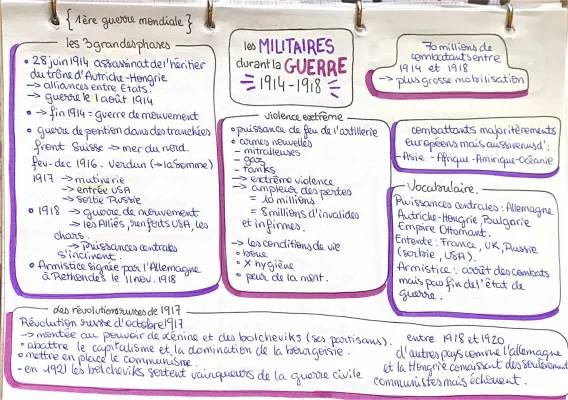 {1ère guerre mondiale}
les 3 grandes phases
• 28 juin 1914 assassinat de l'héritier
du trône d'Autriche-Hongrie
→ alliances entre Etats.
→ guerre le 1 août 1914
• → fin 1914 = guerre de mouvement
• guerre de position dans des tranchées
front Suisse → mer du nord.
fev-dec 1916. Verdun (→ la Somme)
1917 → mutinerie
→ entrée USA
→ sortie Russie
• 1918 → guerre de mouvement
→ les Alliés, renforts USA, les
chars.
→ puissances centrales
s'inclinent.
• Armistice signée par l'Allemagne
à Rethondes le 11 nov. 1918
les MILITAIRES
durant la GUERRE
1914-1918
violence extrême
• puissance de feu de l'artillerie
• armes nouvelles
- mitrailleuses
- gaz
- tanks
→ extrême violence
→ ampleur des pertes
= 10 millions
= 8 millions d'invalides
et infirmes.
→ les conditions de vie
• boue
• X hygiène
• peur de la mort.
70 millions de
combattants entre
1914 et 1918
→ plus grosse mobilisation
combattants majoritèrements
européens mais aussi venus d':
- Asie - Afrique - Amérique - Océanie
Vocabulaire.
Puissances centrales: Allemagne
Autriche-Hongrie, Bulgarie
Empire Ottomant.
Entente: France, UK, Russie
(serbie, USA).
Armistice: arrêt des combats
mais pas fin de l'état de
guerre.
des révolutions russes de 1917
Révolution russe d'octobre 1917
→ montée au pouvoir de Lénine et des bolcheviks (ses partisans).
• abattre le capitalisme et la domination de la bourgeoisie.
• mettre en place le communisme.
- en 1921 les bolcheviks sortent vainqueurs de la guerre civile
entre 1918 et 1920
d'autres pays comme l'allemagne
et la Hongrie conaissent des soulèvement
communistes mais échouent.